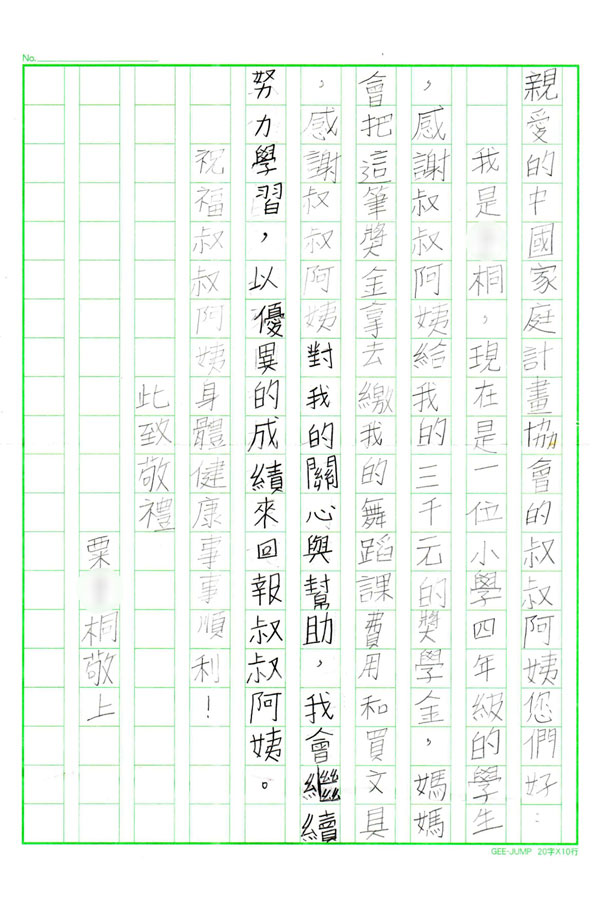 No.
親愛的中國家庭計畫協會的叔叔阿姨您們好：
我是桐，現在是一位小學四年級的學生
，感謝叔叔阿姨給我的三千元的獎學金，媽媽
會把這筆獎金拿去繳我的舞蹈課費用和買文具
，感謝叔叔阿姨對我的關心與幫助，我會繼續
努力學習，以優異的成績來回報叔叔阿姨。
祝福叔叔阿姨身體健康事事順利！
此致敬禮
栗桐敬上
GEE-JUMP 20字X10行